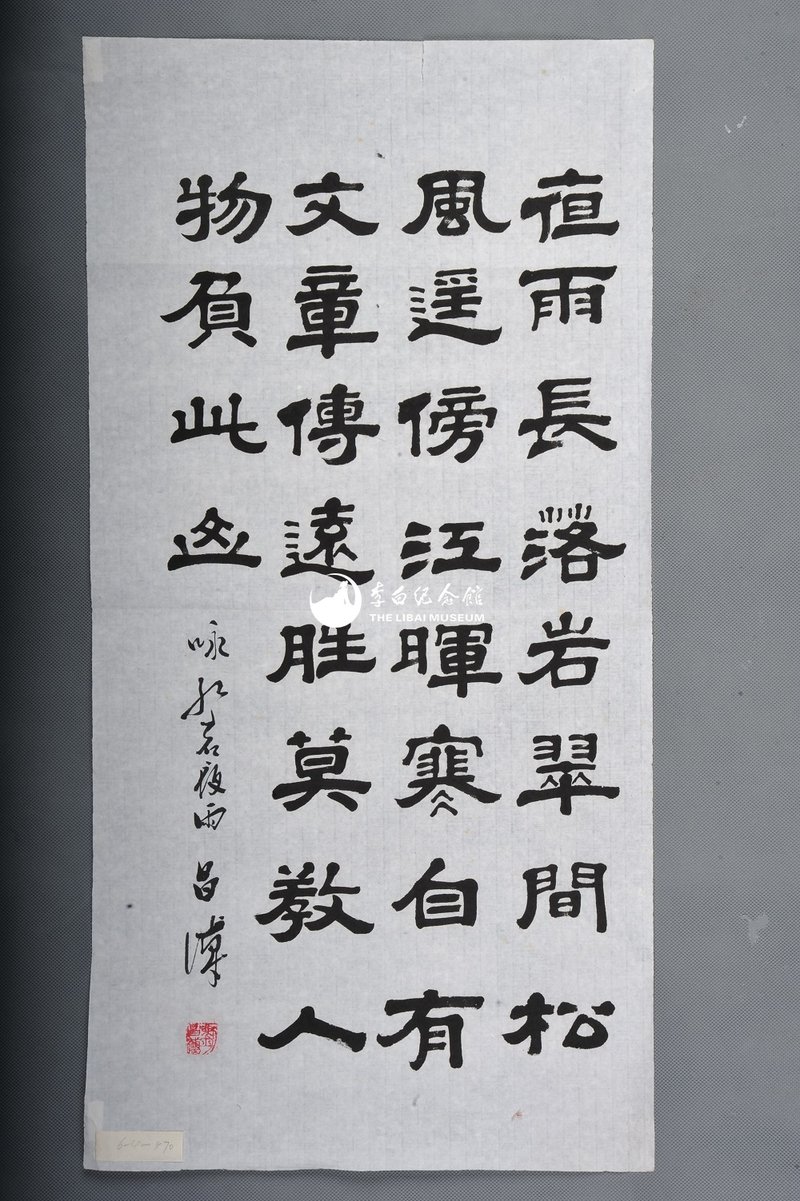 夜雨長落岩翠間松
風遥傍江暉寒自有
文章傳遠胜莫教人
物負此山
咏红岩夜雨 昌
李白纪念馆
THE LIBAI MUSEUM